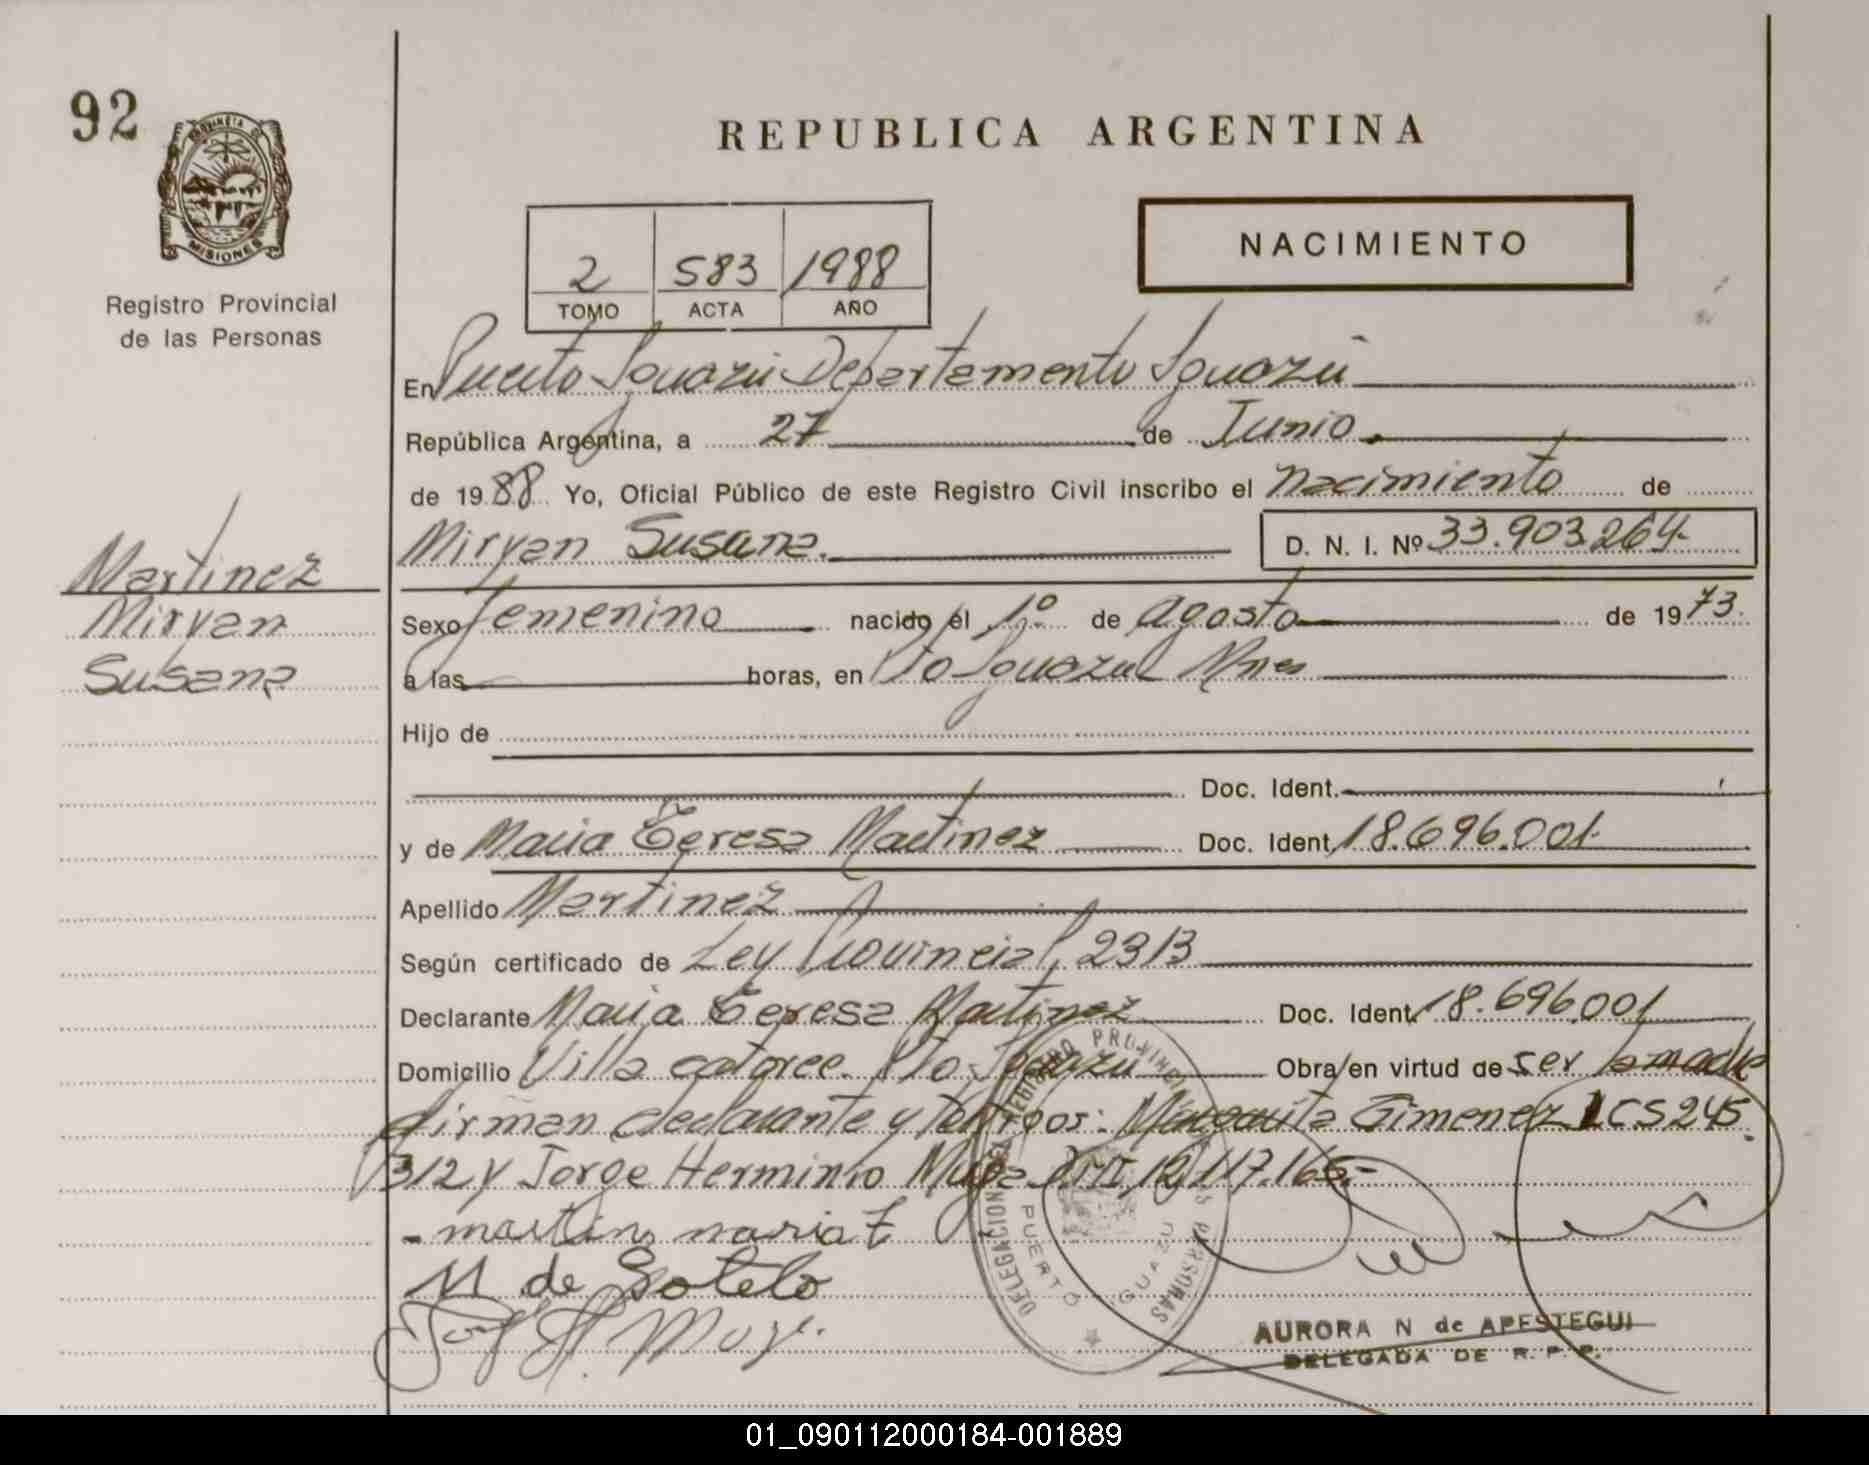 92
PROVINCIA DE
MISIONES
Registro Provincial
de las Personas
REPUBLICA ARGENTINA
2 583 1988
TOMO ACTA AÑO
NACIMIENTO
En Puerto Iguazú Departamento Iguazú
República Argentina, a 27 de Junio.
de 1988 Yo, Oficial Público de este Registro Civil inscribo el Nacimiento de
Miryan Susana. D. N. I. Nº 33.903.264.
Martinez
Miryan
Susana
Sexo femenino nacido el 1º de agosto de 1973.
a las horas, en Pto Iguazú Mnes
Hijo de
Doc. Ident.
y de Maria Teresa Martinez Doc. Ident. 18.696.001.
Apellido Martinez
Según certificado de Ley Provincial 2313
Declarante Maria Teresa Martinez Doc. Ident. 18.696.001
Domicilio Villa catorce. Pto. Iguazú Obra en virtud de ser la madre
firman declarante y testigos: Margarita Gimenez LC 5245.
312 y Jorge Herminio DNI 12.117.165-
- martin maria t
M de Sotelo
DELEGACION REGISTRO PROVINCIAL DE LAS PERSONAS
PUERTO IGUAZU
AURORA N de APESTEGUI
DELEGADA DE R. P. P.
01_090112000184-001889